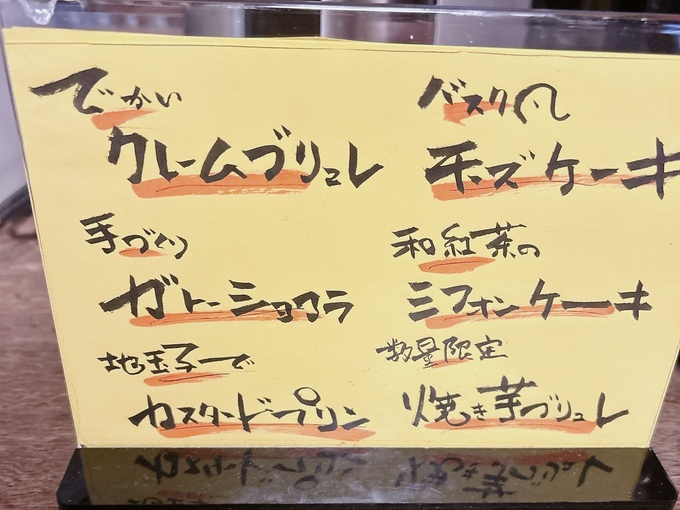 でかい
クレームブリュレ
手づくり
ガトーショコラ
地玉子で
カスタードプリン
バスク風
チーズケーキ
和紅茶の
シフォンケーキ
数量限定
焼き芋ブリュレ